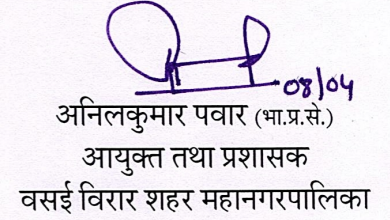 08/04
अनिलकुमार पवार (भा.प्र.से.)
आयुक्त तथा प्रशासक
वसई विरार शहर महानगरपालिका